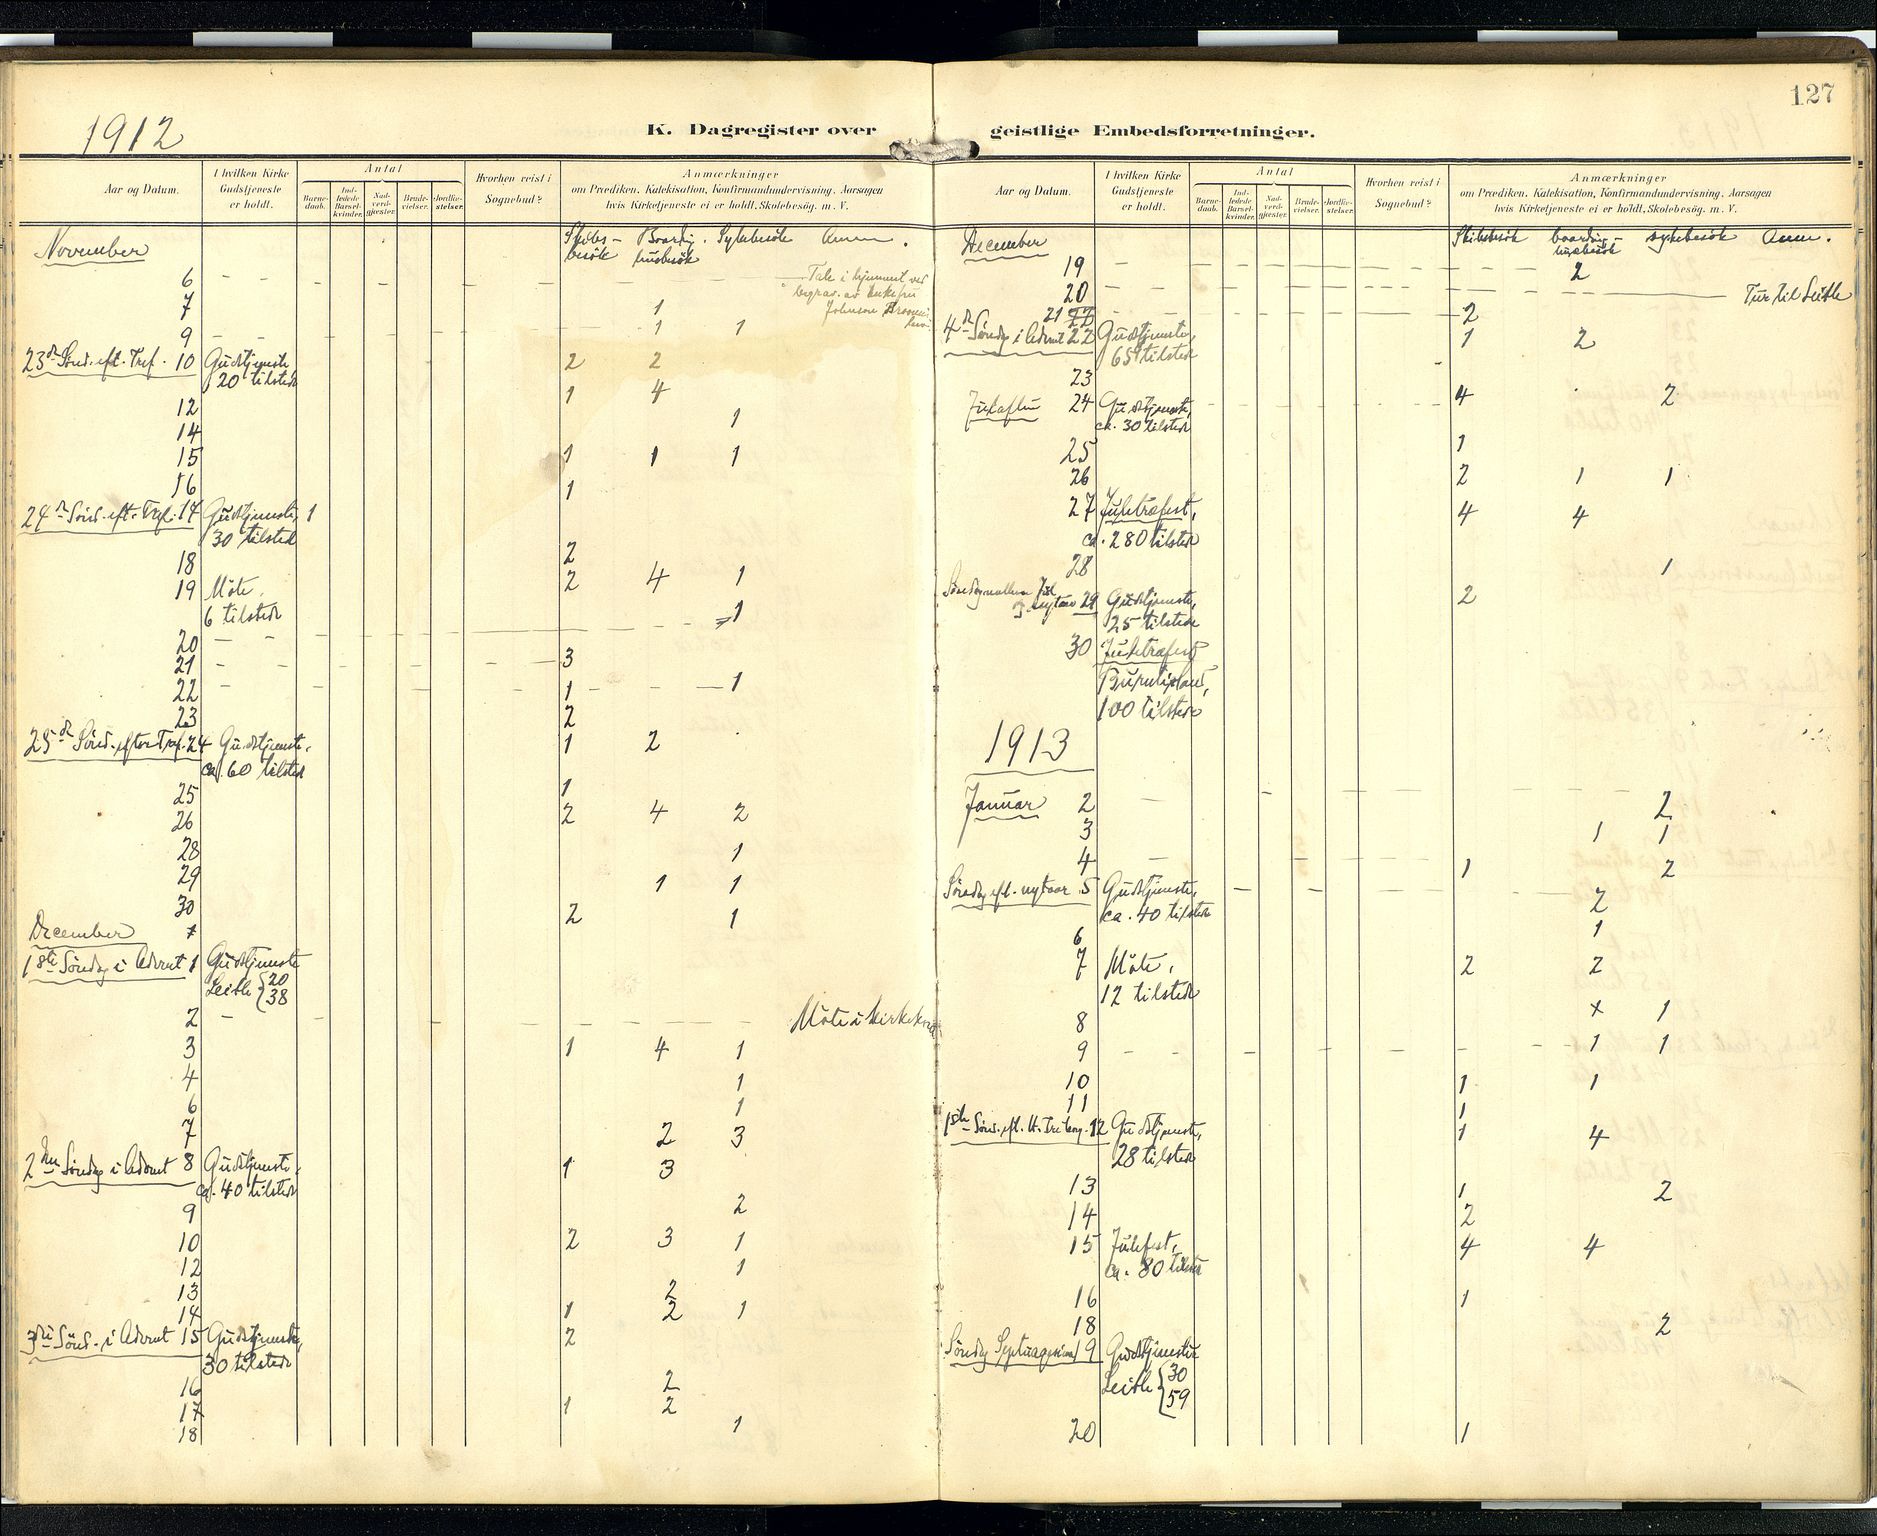 127
1912
K. Dagregister over geistlige Embedsforretninger.
Aar og Datum.
I hvilken Kirke Gudstjeneste er holdt.
Antal
Barnedaab.
Indledede Barselkvinder.
Nadverdgjester.
Brudevielser.
Jordfæstelser.
Hvorhen reist i Sognebud?
Anmærkninger
om Prædiken, Katekisation, Konfirmandundervisning, Aarsagen
hvis Kirketjeneste ei er holdt, Skolebesög. m. V.
November
Skibsbesök Boardinghusbesök Sykebesök Anm.
6 Tale i hjemmet ved
begrav. av
Johnson
7 1
9 1 1
23de Sönd. eft. Tref. 10 Gudstjeneste 2 2
20 tilstede
12 1 4
14 1
15 1 1 1
16 1
24de Sönd. eft. Tref. 17 Gudstjeneste, 1
30 tilstede
18 2
19 Möte, 2 4 1
6 tilstede
20 1
21 3
22 1 1
23 2
25de Sönd. efter Tref. 24 Gudstjeneste, 1 2
ca. 60 tilstede
25 1
26 2 4 2
28 1
29 1 1
30 2 1
December
1ste Söndag i Advent 1 Gudstjeneste
Leith { 20
38
2 Möte i
3 1 4 1
4 1
6 1
7 2 3
2den Söndag i Advent 8 Gudstjeneste, 1 3
ca. 40 tilstede
9 2
10 2 3 1
12 1
13 2
14 1 2 1
3die Sönd. i Advent 15 Gudstjeneste, 2
30 tilstede
16 2
17 1 2
18 1
Aar og Datum.
I hvilken Kirke Gudstjeneste er holdt.
Antal
Barnedaab.
Indledede Barselkvinder.
Nadverdgjester.
Brudevielser.
Jordfæstelser.
Hvorhen reist i Sognebud?
Anmærkninger
om Prædiken, Katekisation, Konfirmandundervisning, Aarsagen
hvis Kirketjeneste ei er holdt, Skolebesög. m. V.
December
Skibsbesök boardinghusbesök sykebesök Anm.
19 2
20 Tur til Leith
21 2
4de Söndag i Advent 22 Gudstjeneste, 1 2
65 tilstede
23
Juleaften 24 Gudstjeneste, 4 2
ca. 30 tilstede
25 1
26 2 1 1
27 Juletræfest, 4 4
ca. 280 tilstede
28 1
Söndag mellem Jul
og nytaar 29 Gudstjeneste, 2
25 tilstede
30 Juletræfest
Burntisland,
100 tilstede
1913
Januar 2 2
3 1 1
4 1 2
Söndag eft. nytaar 5 Gudstjeneste, 2
ca. 40 tilstede
6 1
7 Möte, 2 2
12 tilstede
8 x 1
9 1 1
10 1 1
11 1
1ste Sönd. eft. H. Tre kong. 12 Gudstjeneste, 1 4
28 tilstede
13 1 2
14 2
15 Julefest, 4 4
ca. 80 tilstede
16 1
18 2
Söndag Septuagesima 19 Gudstjenester
Leith { 30
59
20 1